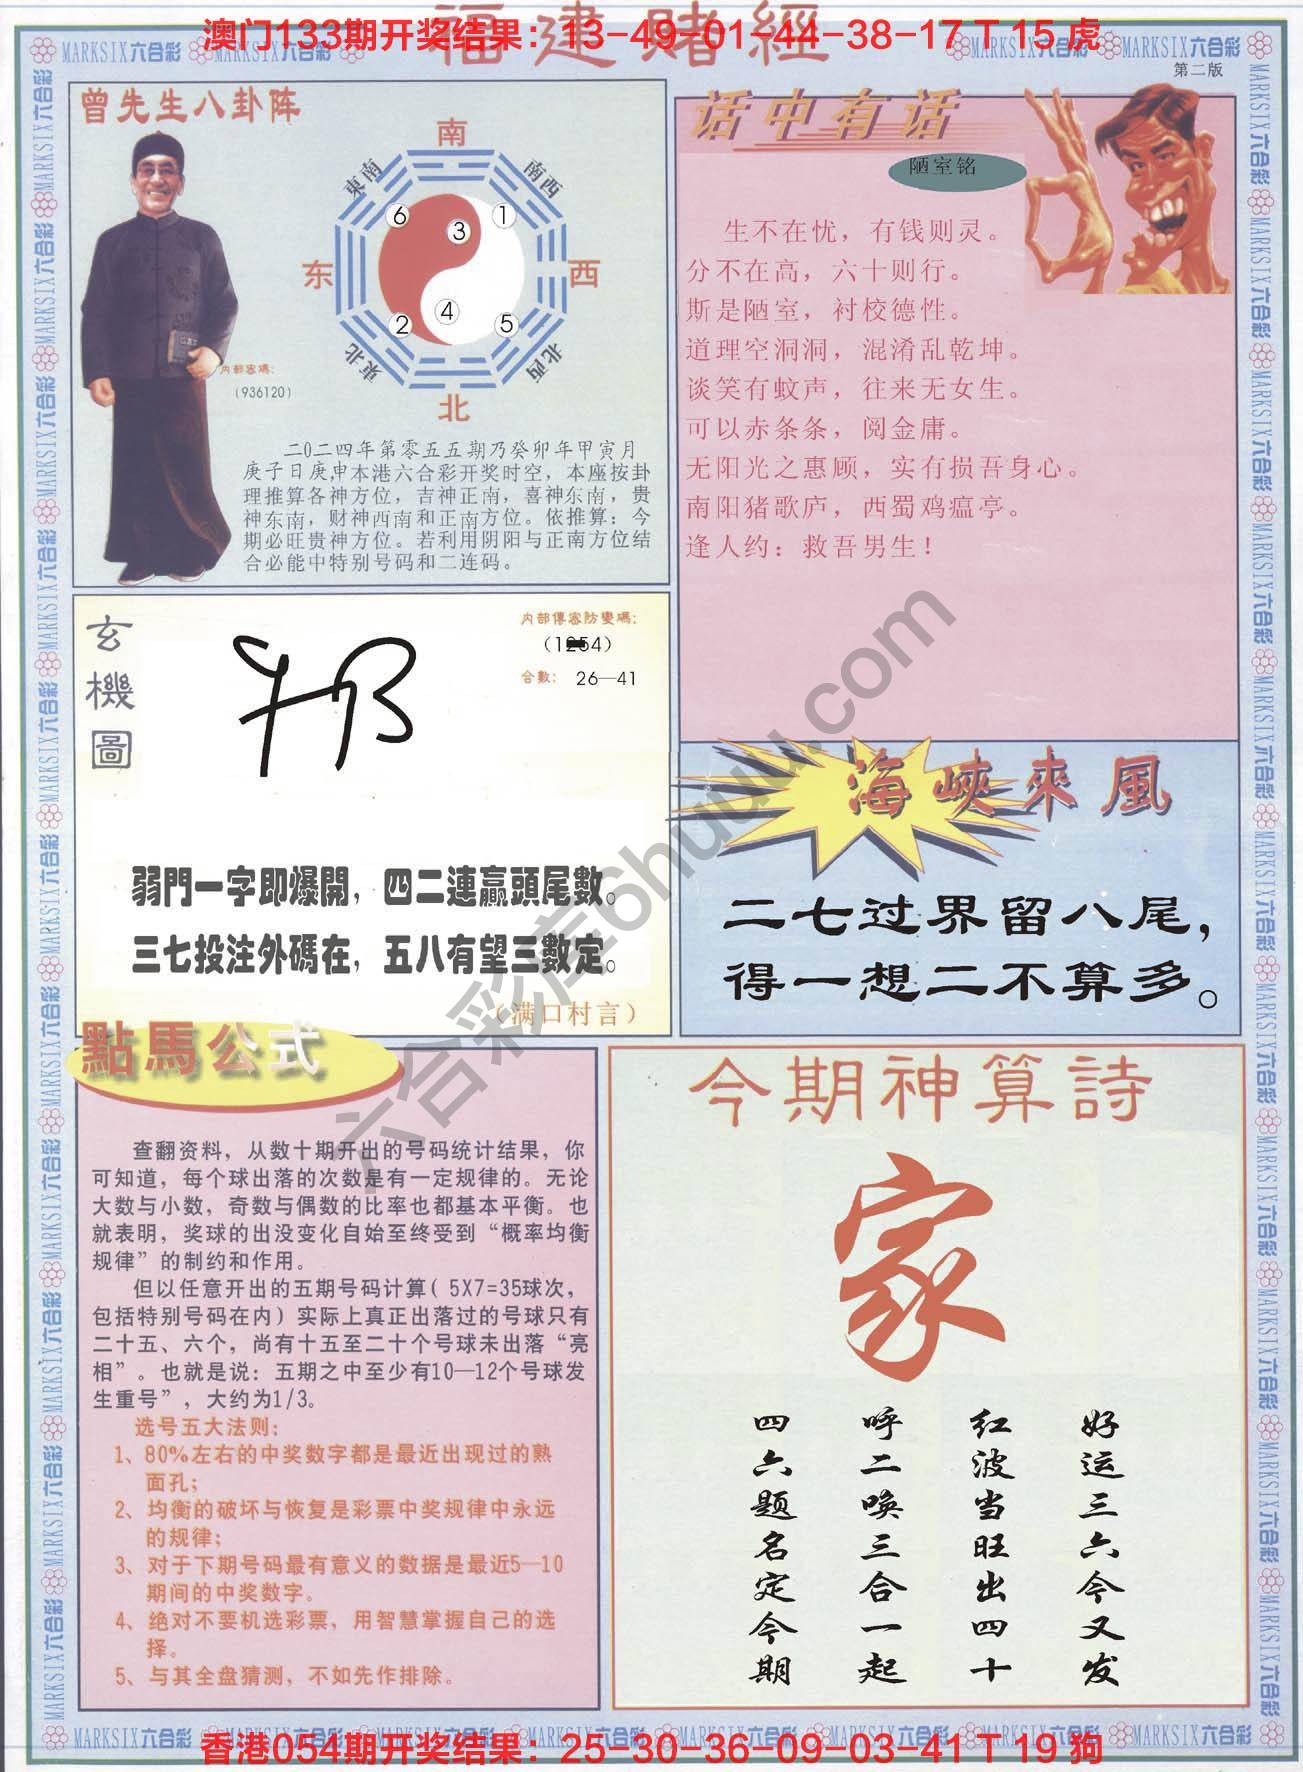 福建赌經
澳门133期开奖结果：13-49-01-44-38-17 T 15 虎
MARKSIX六合彩 MARKSIX六合彩 MARKSIX六合彩 MARKSIX六合彩
第二版
曾先生八卦阵
南
東南
南西
6
3
1
东
西
4
2
5
東北
北西
北
内部密碼:
(936120)
二0二四年第零五五期乃癸卯年甲寅月
庚子日庚申本港六合彩开奖时空，本座按卦
理推算各神方位，吉神正南，喜神东南，贵
神东南，财神西南和正南方位。依推算：今
期必旺贵神方位。若利用阴阳与正南方位结
合必能中特别号码和二连码。
话中有话
陋室铭
生不在忧，有钱则灵。
分不在高，六十则行。
斯是陋室，衬校德性。
道理空洞洞，混淆乱乾坤。
谈笑有蚊声，往来无女生。
可以赤条条，阅金庸。
无阳光之惠顾，实有损吾身心。
南阳猪歌庐，西蜀鸡瘟亭。
逢人约：救吾男生！
玄機圖
内部傳密防變碼:
合數: 26—41
弱門一字即爆開，四二連贏頭尾數。
三七投注外碼在，五八有望三數定。
（满口村言）
海峽來風
二七过界留八尾，
得一想二不算多。
點馬公式
查翻资料，从数十期开出的号码统计结果，你
可知道，每个球出落的次数是有一定规律的。无论
大数与小数，奇数与偶数的比率也都基本平衡。也
就表明，奖球的出没变化自始至终受到“概率均衡
规律”的制约和作用。
但以任意开出的五期号码计算( 5X7=35球次，
包括特别号码在内）实际上真正出落过的号球只有
二十五、六个，尚有十五至二十个号球未出落“亮
相”。也就是说：五期之中至少有10—12个号球发
生重号”，大约为1/3。
选号五大法则：
1、80%左右的中奖数字都是最近出现过的熟
面孔；
2、均衡的破坏与恢复是彩票中奖规律中永远
的规律；
3、对于下期号码最有意义的数据是最近5—10
期间的中奖数字。
4、绝对不要机选彩票，用智慧掌握自己的选
择。
5、与其全盘猜测，不如先作排除。
今期神算詩
家
好运三六今又发
红波当旺出四十
呼二唤三合一起
四六题名定今期
六合彩库6huuu.com
MARKSIX六合彩 MARKSIX六合彩 MARKSIX六合彩 MARKSIX六合彩
香港054期开奖结果：25-30-36-09-03-41 T 19 狗